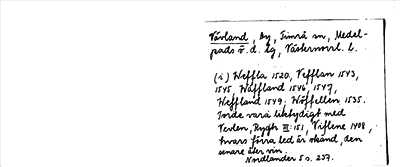 Vävland, by, Timrå sn, Medel-
pads v. d. lg, Västernorrl. l.
(i) Weffla 1520, Vefflan 1543,
1545, Waffland 1546, 1547,
Weffland 1549. Wöffellen 1535.
Torde vara liktydigt med
Vevlen, Rygh III: 151, Viflene 1408,
hvars förra led är skänd, den
senare äter vin.
Nordlander S n. 237.